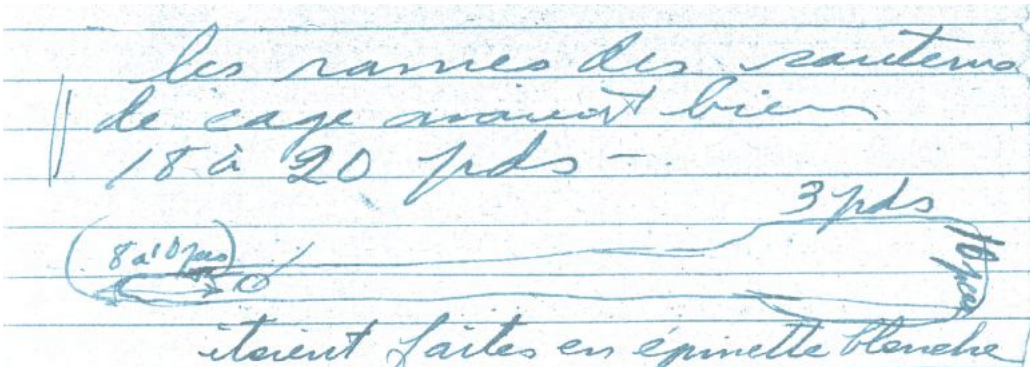 les rames des sauteurs
de cage avaient bien
18 à 20 pds -
3 pds
8 à 10 pcs
10 pces
étaient faites en épinette blanche